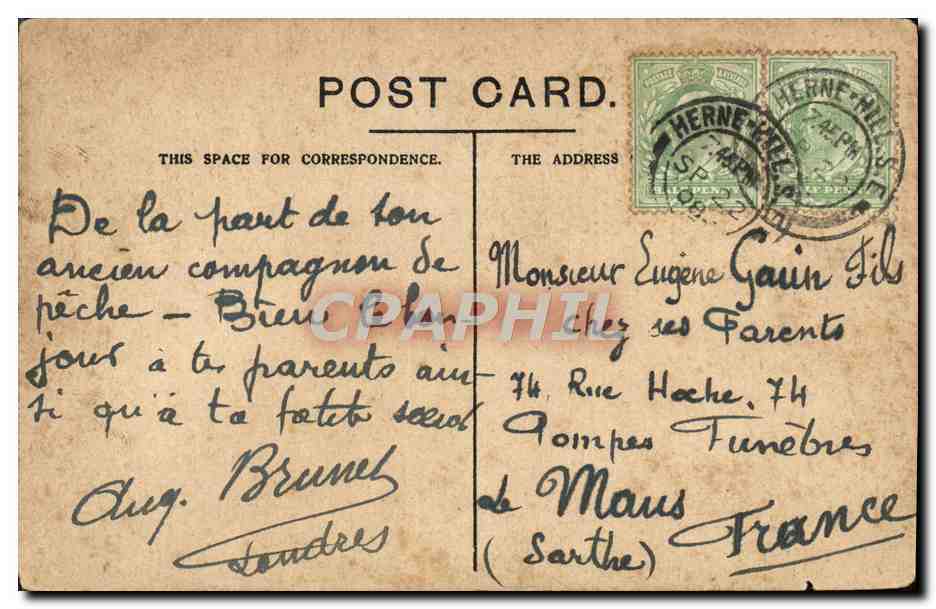 POST CARD.
THIS SPACE FOR CORRESPONDENCE.
THE ADDRESS
HALF PENNY
HALF PENNY
HERNE-HILL S.E.
7.45PM
SP 22
08
HERNE-HILL S.E.
7.45PM
De la part de ton
ancien compagnon de
pêche – Bien le bon
jour à tes parents ain-
si qu'à ta petite soeur
Aug. Brunet
Londres
Monsieur Eugène Gaun Fils
chez ses Parents
74, Rue Hoche, 74
Pompes Funèbres
Le Mans
(Sarthe)
France
CPAPHIL